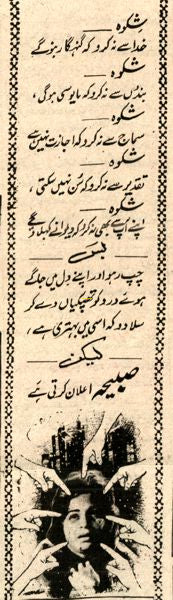 شکوہ
خدا سے نہ کرو کہ گنہگار ہو گے
شکوہ
بندوں سے نہ کرو کہ مایوسی ہوگی،
شکوہ
سماج سے نہ کرو کہ اجازت نہیں ہے
شکوہ
تقدیر سے نہ کرو کہ سُن نہیں سکتی،
شکوہ
اپنے آپ سے بھی نہ کرو کہ دیوانے کہلاؤ گے
بس
چپ رہو اور اپنے دل میں جاگے
ہوئے درد کو تھپکیاں دے کر
سلا دو کہ اسی میں بہتری ہے،
لیکن
صبیحہ اعلان کرتی ہے